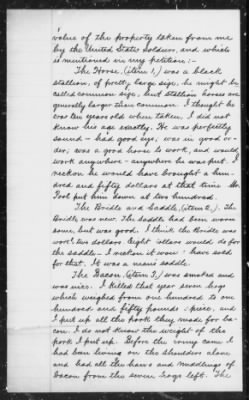 value of the property taken from me
by the United States soldiers, and which
is mentioned in my petition:-
The Horse, (item 1,) was a black
stallion, of pretty large size, he might be
called common size, but stallion horses are
generally larger than common. I thought he
was ten years old when taken. I did not
know his age exactly. He was perfectly
sound - had good eyes, was in good or-
der, was a good horse to work, and would
work anywhere - anywhere he was put. I
reckon he would have brought a hun-
dred and fifty dollars at that time. Mr.
Pool put him down at two hundred.
The Bridle and Saddle, (item 2,). The
Bridle was new. The saddle had been worn
some, but was good. I think the Bridle was
worth two dollars. Eight dollars would do for
the saddle. I reckon it would have sold
for that. It was a man's saddle.
The Bacon, (item 3,) was smoked and
was nice. I killed that year seven hogs
which weighed from one hundred to one
hundred and fifty pounds apiece, and
I put up all the pork they made for ba-
con. I do not know the weight of the
pork I put up. Before the army came I
had been living on the shoulders alone
and had all the hams and middlings of
bacon from the seven hogs left. The